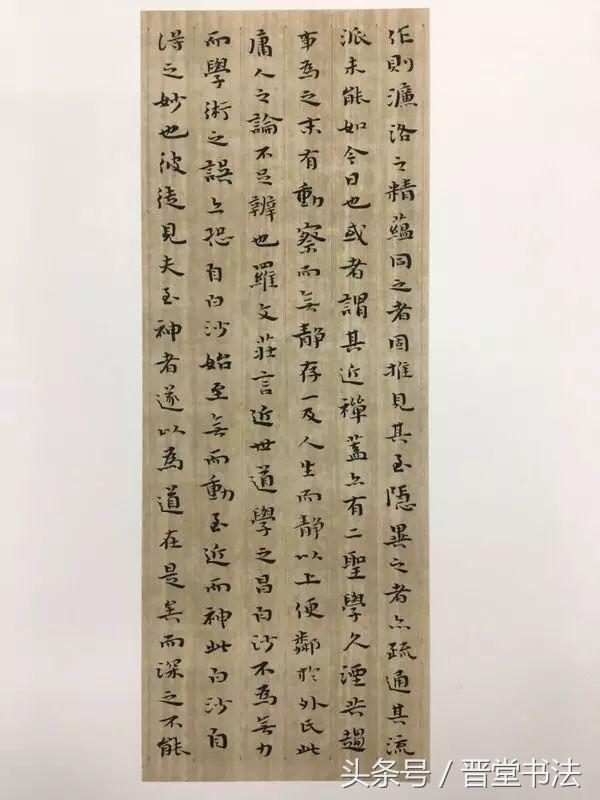 作則濂洛之精蘊同之者固推見其至隱異之者亦疏通其流
派未能如今日也或者謂其近禪蓋亦有二聖學久湮共趨
事為之末有動察而無靜存一及人生而靜以上便鄰於外氏此
庸人之論不足辨也羅文莊言近世道學之昌白沙不為無力
而學術之誤亦恐自白沙始至無而動至近而神此白沙自
得之妙也彼徒見夫至神者遂以為道在是矣而深之不能
头条号／晋堂书法